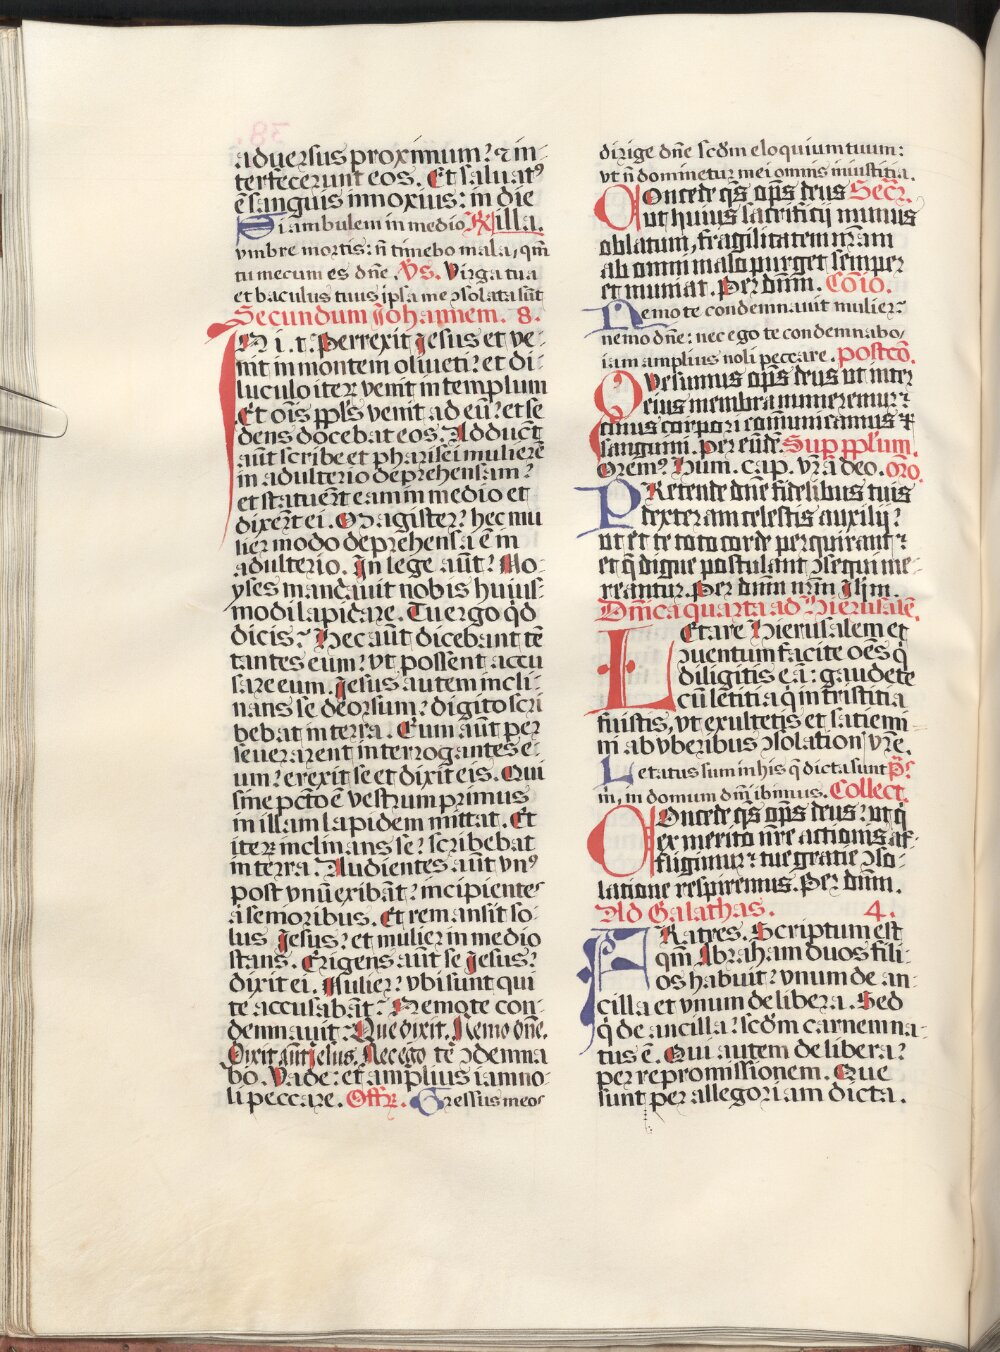 adversus proximum? ⁊ in-
terfecerunt eos. Et salvatꝰ
ē sanguis innoxius: in die
Si ambulem in medio R̃ illa.
vmbre mortis: ñ timebo mala, qm̄
tu mecum es dñe. V̄s. Virga tua
et baculus tuus ipsa me ↄsolata sūt
Secundum Johannem. 8.
IN i. t. Perrexit Jesus et ve-
nit in montem oliveti? et di-
luculo iterꝝ venit in templum
Et oīs ppl̄s venit ad eū? et se
dens docebat eos. Adducūt
aūt scribe et pharisei mulierē
in adulterio deprehensam?
et statuerūt eam in medio et
dixerūt ei. Magister? hec mu
lier modo deprehensa ē in
adulterio. In lege aūt? Mo-
yses mandavit nobis huius-
modi lapidare. Tu ergo qd̄
dicis? Hec aūt dicebant tē
tantes eum? vt possent accu
sare eum. Jesus autem incli-
nans se deorsum? digito scri
bebat in terra. Cum aūt per
severarent interrogantes e-
um? erexit se et dixit eis. Qui
sine pctō ē vestrum primus
in illam lapidem mittat. Et
iterꝝ inclinans se? scribebat
in terra. Audientes aūt vnꝰ
post vnū exibāt? incipientes
a senioribus. Et remansit so-
lus Jesus? et mulier in medio
stans. Erigens aūt se Jesus?
dixit ei. Mulier? vbi sunt qui
te accusabāt? Nemo te con-
demnavit? Que dixit. Nemo dñe.
Dixit aūt Jesus. Nec ego te ↄdemna
bo. Vade: et amplius iam no-
li peccare. Offr̄. Gressus meos
dirige dñe scdm̄ eloquium tuum:
vt ñ dominetur mei omnis iniustitia.
COncede qs̄ ops̄ deus Secr̄.
ut huius sacrificij munus
oblatum, fragilitatem nr̄am
ab omni malo purget semper
et muniat. Per dnm̄. Cōio.
Nemo te condemnavit mulier?
nemo dñe: nec ego te condemnabo,
iam amplius noli peccare. postcō.
QVesumus ops̄ deus ut inter
eius membra numeremur?
cuius corpori communicamus ⁊
sanguini. Per eūdē. Sup pplūm.
Oremꝰ Hum. cap. vr̄a deo. orō.
PRetende dñe fidelibus tuis
dexteram celestis auxilij?
ut et te toto corde perquirant ⁊
et q̄ digne postulant ↄsequi me-
reantur. Per dnm̄ nr̄m Jhm̄.
Dñica quarta ad Hierusalē.
LEtare Hierusalem et
ↄventum facite oēs q̄
diligitis eā: gaudete
cū letitia q̄ in tristitia
fuistis, vt exultetis et satiemi-
ni ab vberibus ↄsolationis vr̄e.
Letatus sum in his q̄ dicta sunt P̄s
mi, in domum dnī ibimus. Collect.
COncede qs̄ ops̄ deus? ut q̄
ex merito nr̄e actionis af-
fligimur? tue gratie ↄso-
latione respiremus. Per dnm̄.
Ad Galathas. 4.
FRatres. Scriptum est
qm̄ Abraham duos fili-
os habuit? vnum de an-
cilla et vnum de libera. Sed
q̄ de ancilla? scdm̄ carnem na-
tus ē. Qui autem de libera?
per repromissionem. Que
sunt per allegoriam dicta.